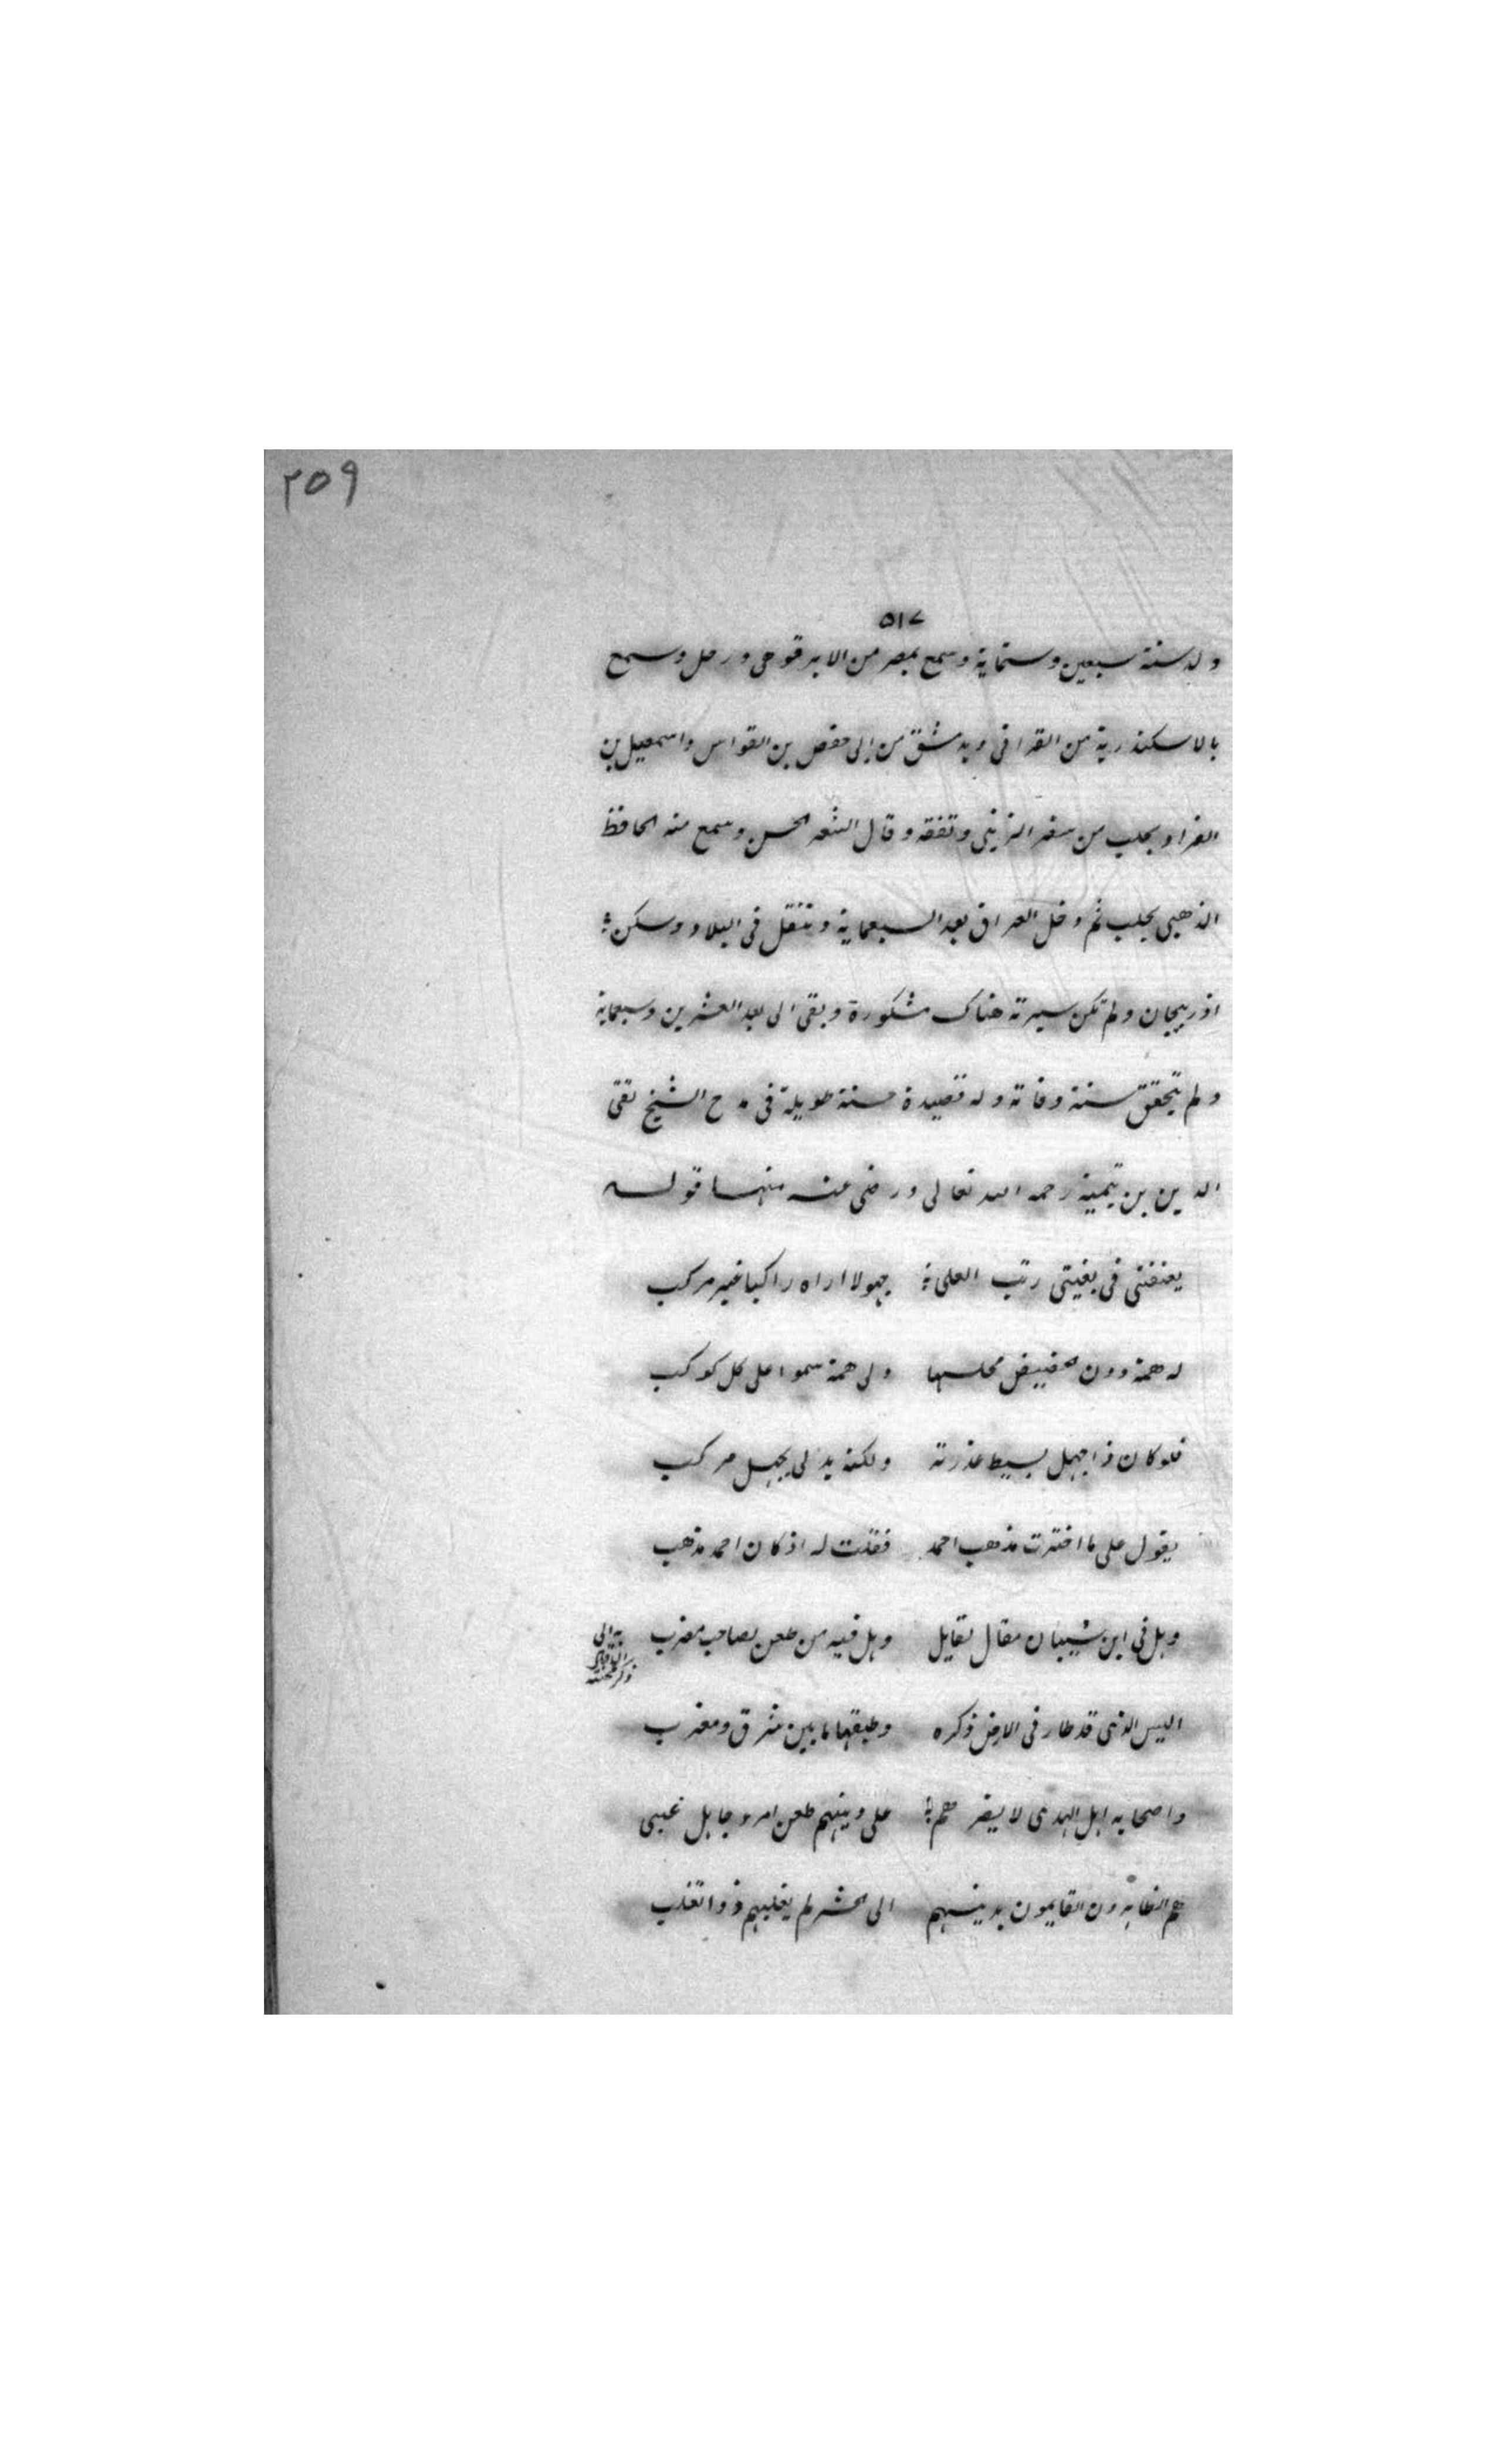 ٢٥٩
٥١٧
ولد سنة سبعين وستماية وسمع بمصر من الابرقوهى ورحل وسمع
بالاسكندرية من القرافى وبدمشق من ابى حفص بن القواس واسمعيل بن
الفرا وبحلب من سنقر الزينى وتفقه وقال الشعر الحسن وسمع منه الحافظ
الذهبى بحلب ثم دخل العراق بعد السبعماية وتنقل فى البلاد وسكن
اذربيجان ولم تكن سيرته هناك مشكورة وبقى الى بعد العشرين وسبعماية
ولم يتحقق سنة وفاته وله قصيدة حسنة طويلة فى مدح الشيخ تقى
الدين بن تيمية رحمه الله تعالى ورضى عنه منها قوله
يعنفنى فى بغيتى رتب العلى جهولا اراه راكبا غير مركب
له همة دون الحضيض محلها ولى همة سموا على كل كوكب
فلو كان ذا جهل بسيط عذرته ولكنه يدلى بجهل مركب
يقول على ما اخترت مذهب احمد فقلت له اذ كان احمد مذهب
وهل فى ابن شيبان مقال لقايل وهل فيه من طعن لصاحب مضرب
اليس الذى قد طار فى الارض ذكره وطبقها ما بين شرق ومغرب
واصحابه اهل الهدى لا يضرهم على دينهم طعن امرء جاهل غبى
هم الظاهرون القايمون بدينهم الى الحشر لم يغلبهم ذوا تغلب